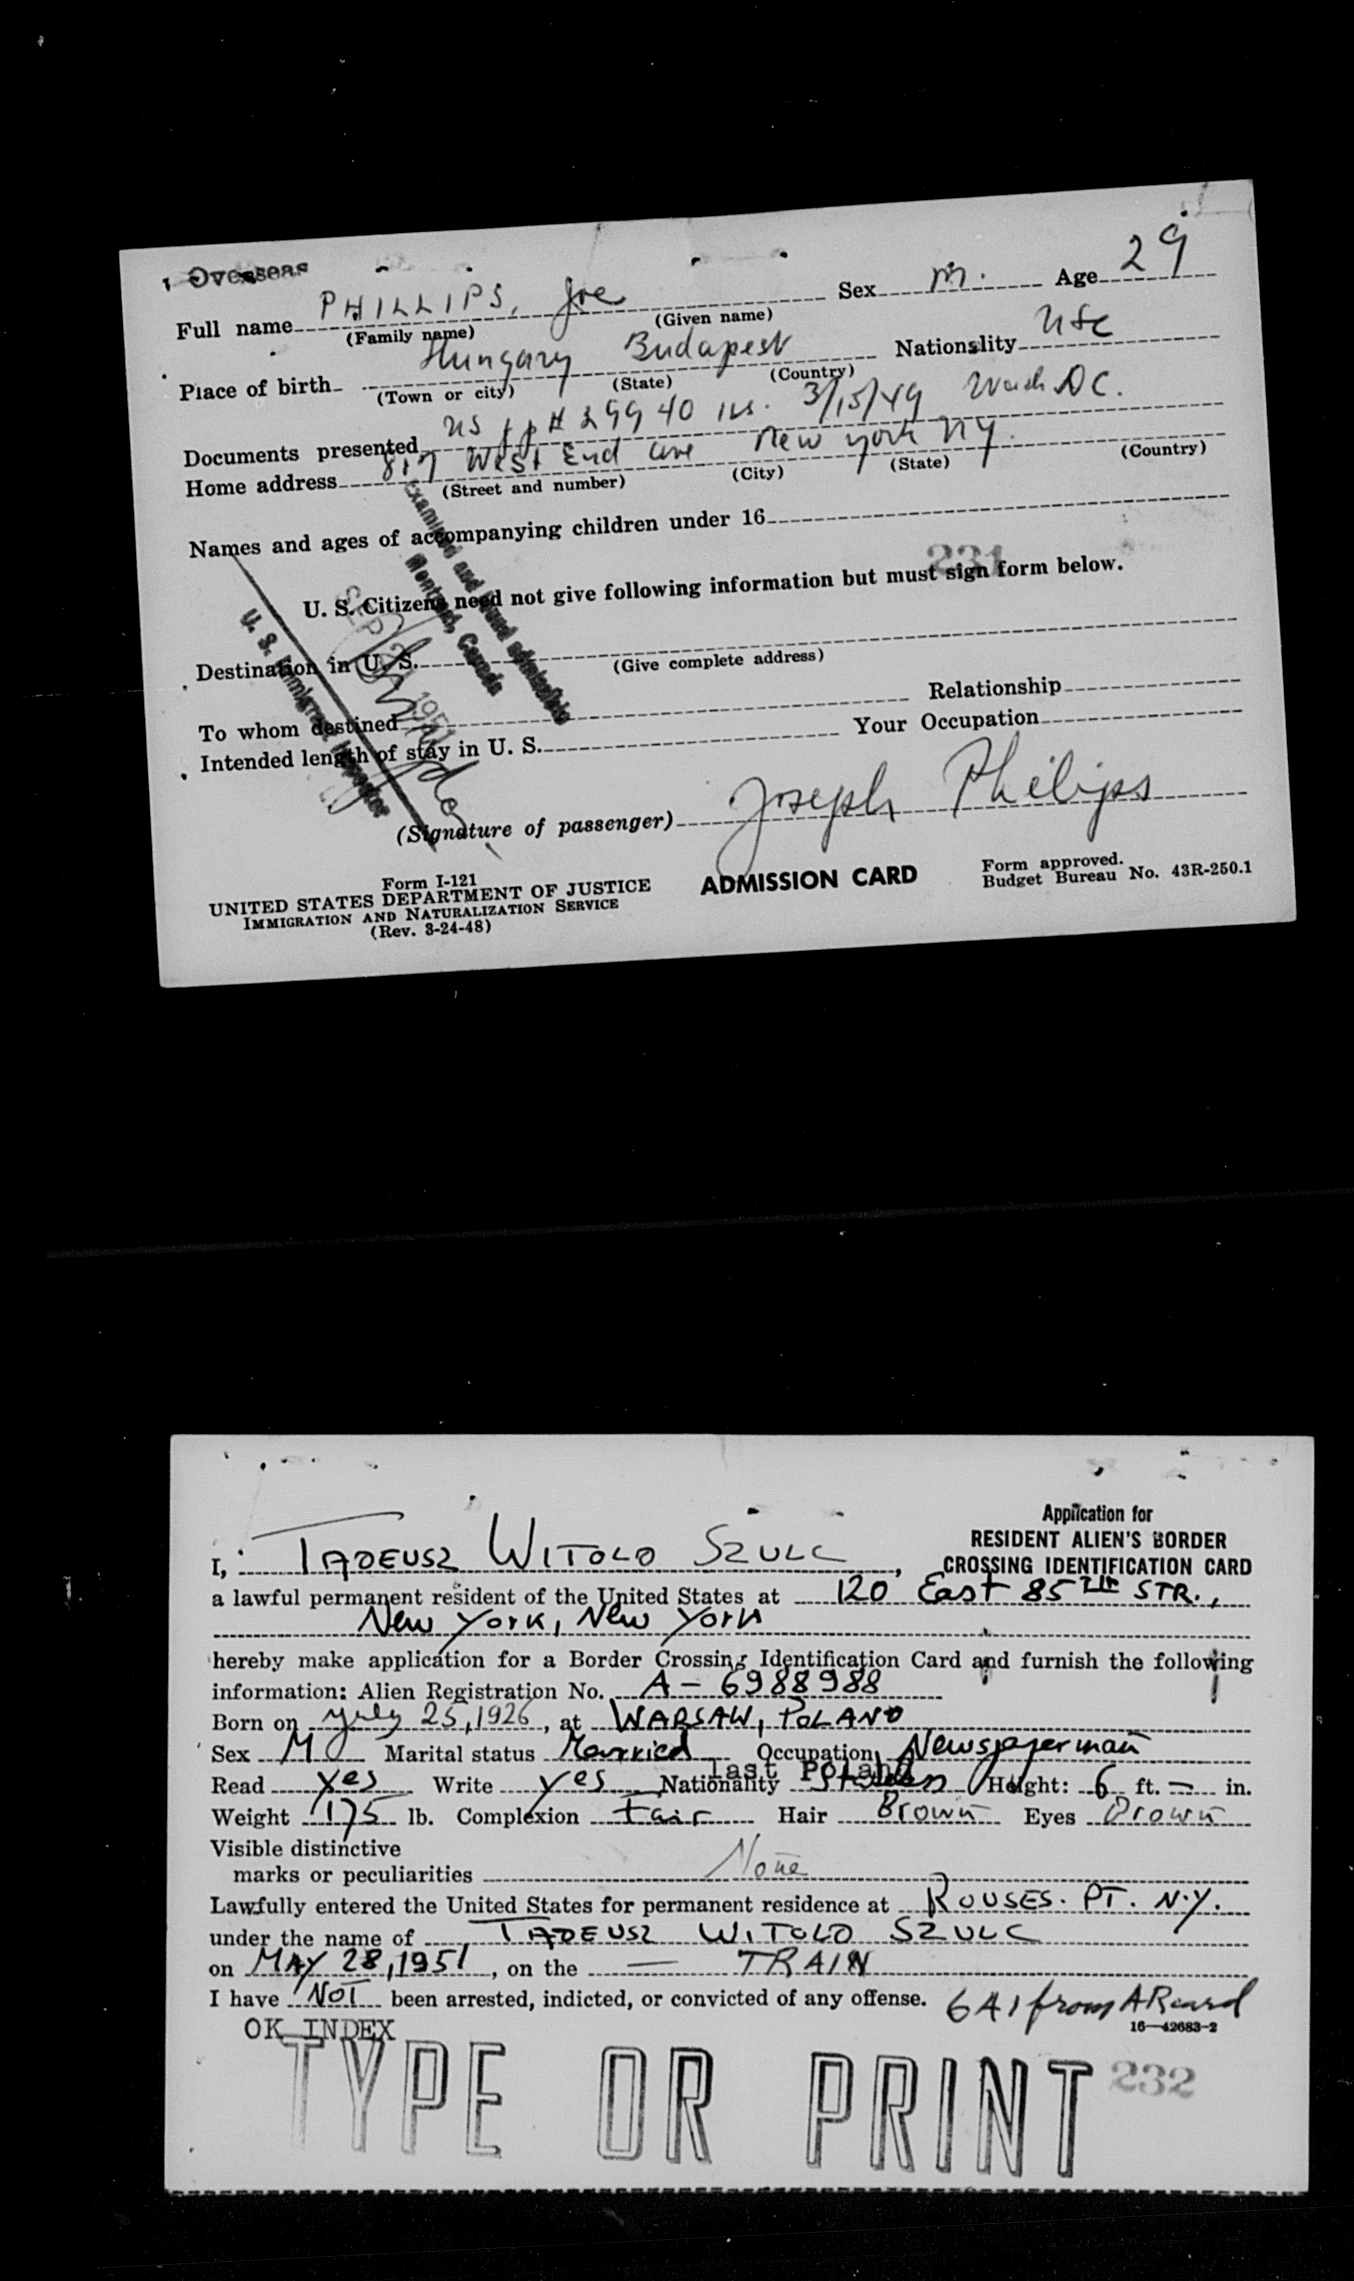 Overseas
Full name PHILLIPS, Joe Sex m. Age 29
(Family name) (Given name)
Place of birth Hungary Budapest Nationality USC
(Town or city) (State) (Country)
Documents presented US pp # 29940 iss. 3/15/49 Wash DC.
Home address 817 West End ave New York NY.
(Street and number) (City) (State) (Country)
Names and ages of accompanying children under 16
231
U. S. Citizens need not give following information but must sign form below.
Examined and found admissible
Montreal, Canada
SEP 1951
U. S. Immigrant Inspector
Destination in U. S.
(Give complete address)
To whom destined Relationship
Intended length of stay in U. S. Your Occupation
(Signature of passenger) Joseph Philips
Form I-121
UNITED STATES DEPARTMENT OF JUSTICE
IMMIGRATION AND NATURALIZATION SERVICE
(Rev. 3-24-48)
ADMISSION CARD
Form approved.
Budget Bureau No. 43R-250.1
Application for
RESIDENT ALIEN'S BORDER
CROSSING IDENTIFICATION CARD
I, TADEUSZ WITOLD SZULC,
a lawful permanent resident of the United States at 120 East 85th STR.,
New York, New York
hereby make application for a Border Crossing Identification Card and furnish the following
information: Alien Registration No. A-6988988
Born on July 25, 1926, at WARSAW, POLAND
Sex M Marital status Married Occupation Newspaperman
last Poland
Read yes Write yes Nationality Height: 6 ft. - in.
Weight 175 lb. Complexion Fair Hair Brown Eyes Brown
Visible distinctive
marks or peculiarities None
Lawfully entered the United States for permanent residence at ROUSES. PT. N.Y.
under the name of TADEUSZ WITOLD SZULC
on MAY 28, 1951, on the — TRAIN
I have NOT been arrested, indicted, or convicted of any offense.
6A1 from AR card
16—42683-2
OK INDEX
TYPE OR PRINT
232